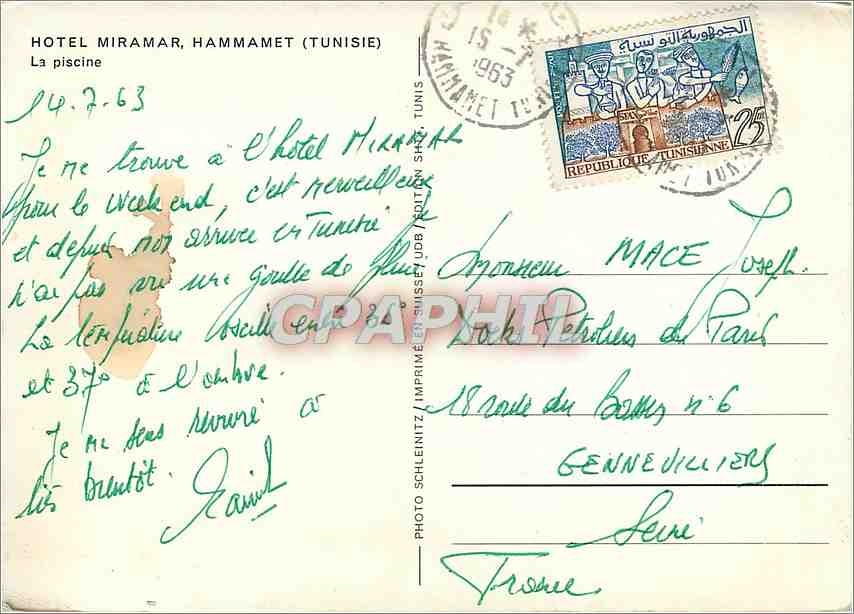 HOTEL MIRAMAR, HAMMAMET (TUNISIE)
La piscine
14.7.63
Je me trouve à l'hôtel MIRAMAR
pour le week end, c'est merveilleux
et depuis mon arrivée en Tunisie je
n'ai pas vu une goutte de pluie
La température oscille entre 32°
et 37° à l'ombre.
Je me sens revivre à
très bientôt.
PHOTO SCHLEINITZ / IMPRIMÉ EN SUISSE / UDB / ÉDITION TUNIS
15 -7
1963
HAMMAMET
الجمهورية التونسية
SFAX
25 m
REPUBLIQUE TUNISIENNE
Monsieur MACE Joseph
Docks Pétroliers de Paris
18 route du Bassin n° 6
GENNEVILLIERS
Seine
France
CPAPHIL